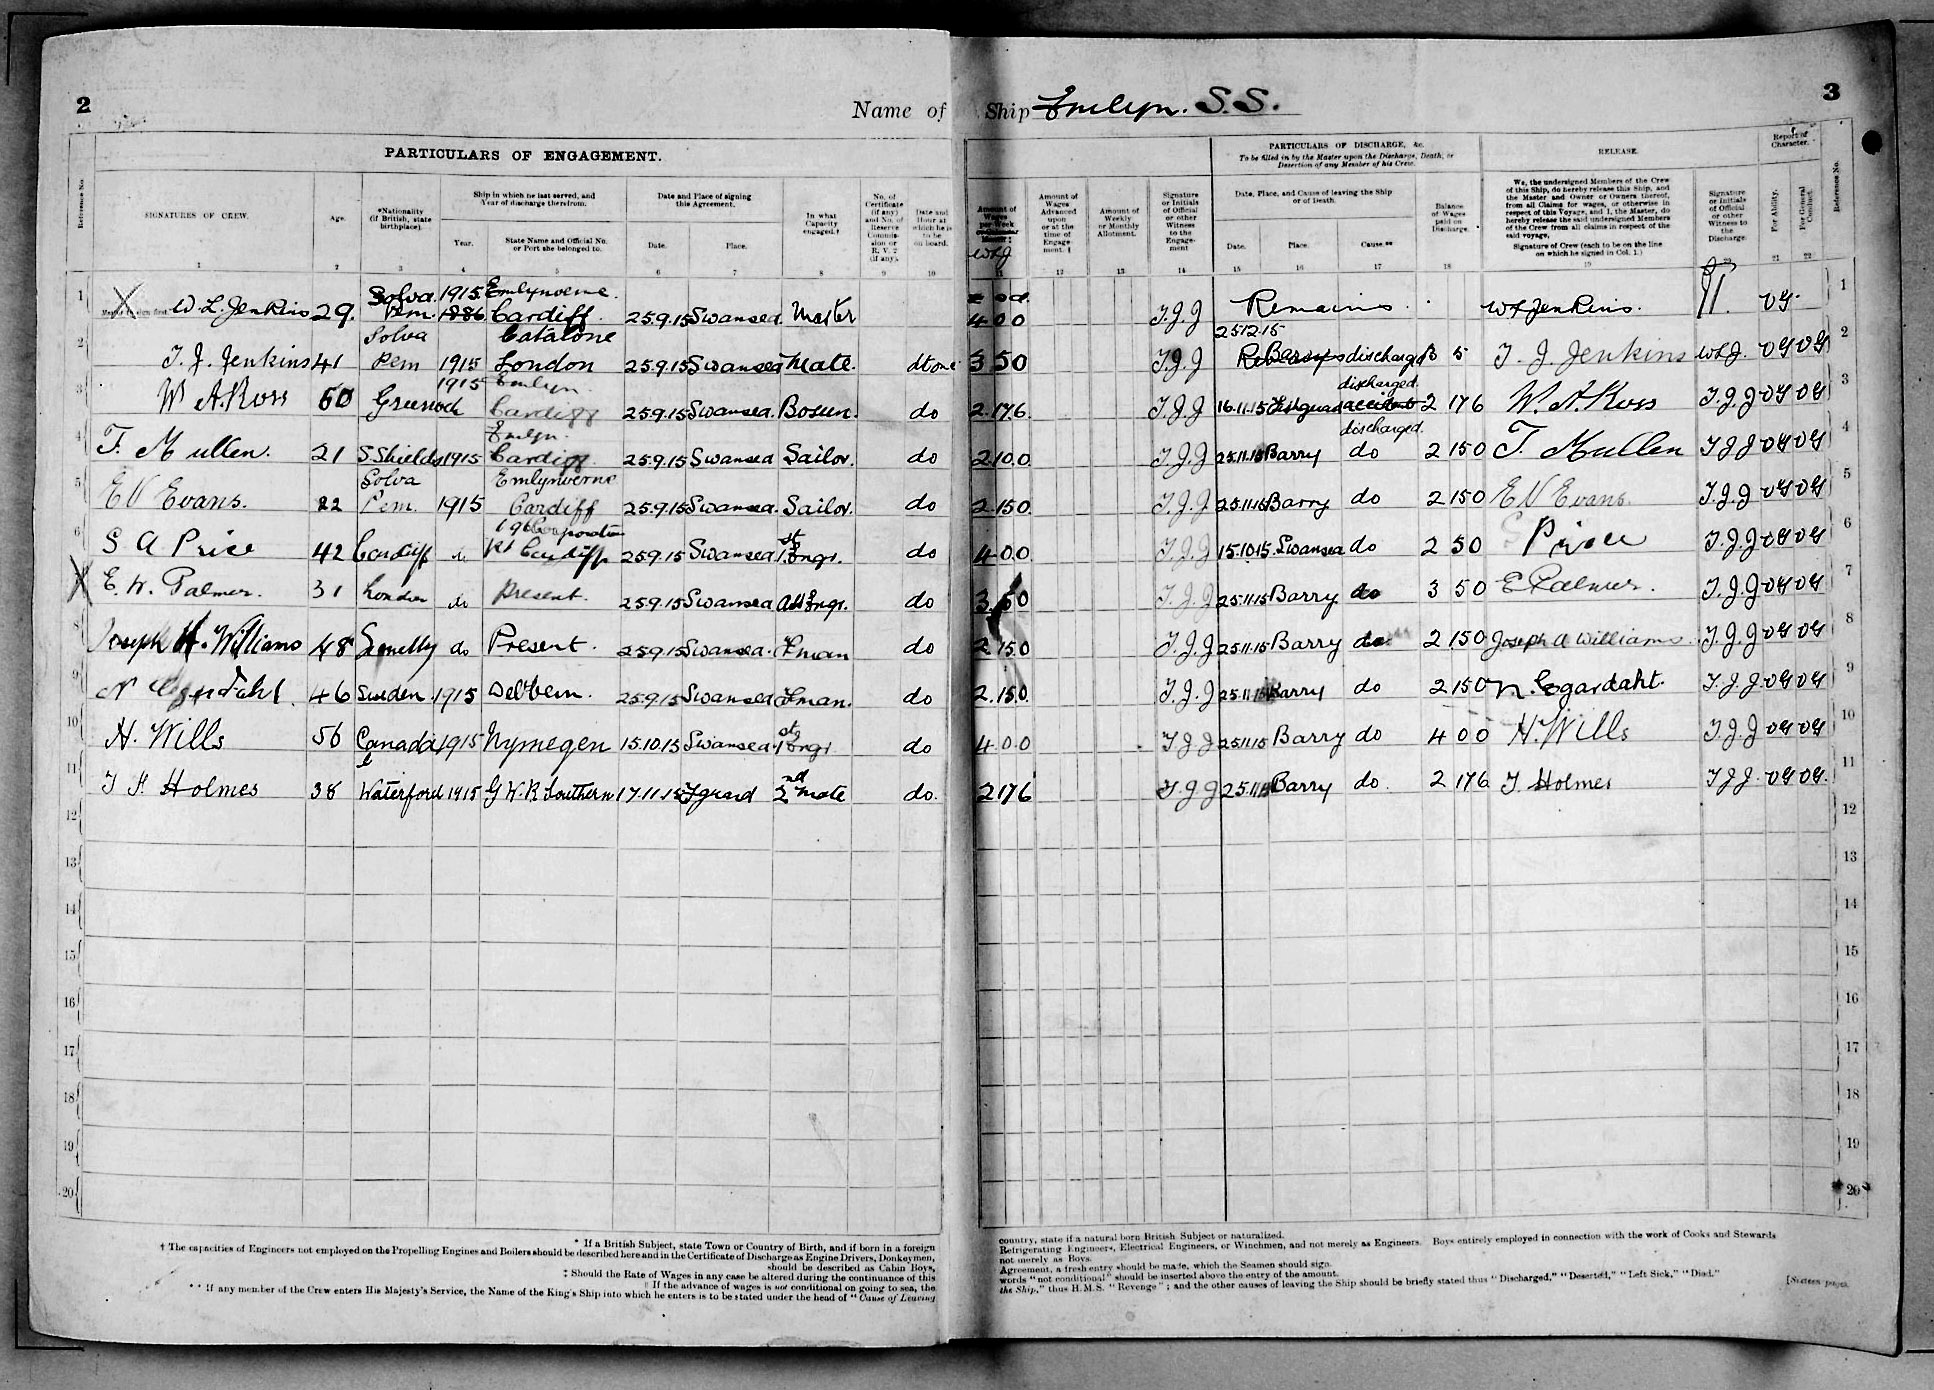 2
Name of Ship Emlyn. S.S.
3
PARTICULARS OF ENGAGEMENT.
PARTICULARS OF DISCHARGE, &c.
To be filled in by the Master upon the Discharge, Death, or Desertion of any Member of his Crew.
RELEASE.
Report of Character.
Reference No.
SIGNATURES OF CREW.
Age.
*Nationality (if British, state birthplace).
Ship in which he last served, and Year of discharge therefrom.
Year.
State Name and Official No. or Port she belonged to.
Date and Place of signing this Agreement.
Date.
Place.
In what Capacity engaged.†
No. of Certificate (if any) and No. of Reserve Commission or R. V. 2 (if any).
Date and Hour at which he is to be on board.
Amount of Wages per Week or Calendar Month ‡
WLJ
Amount of Wages Advanced upon or at the time of Engagement. ‖
Amount of Weekly or Monthly Allotment.
Signature or Initials of Official or other Witness to the Engagement
Date, Place, and Cause of leaving the Ship or of Death.
Date.
Place.
Cause.**
Balance of Wages paid on Discharge.
We, the undersigned Members of the Crew of this Ship, do hereby release this Ship, and the Master and Owner or Owners thereof, from all Claims for wages, or otherwise in respect of this Voyage, and I, the Master, do hereby release the said undersigned Members of the Crew from all claims in respect of the said voyage.
Signature of Crew (each to be on the line on which he signed in Col. 1.)
Signature or Initials of Official or other Witness to the Discharge.
For Ability.
For General Conduct.
Reference No.
1 2 3 4 5 6 7 8 9 10 11 12 13 14 15 16 17 18 19 20 21 22
1 X Master to sign first W. L. Jenkins 29. Solva. Pem. 1915 1886 Emlynverne. Cardiff. 25.9.15 Swansea. Master 4 0 0 T.J.J Remains. W L Jenkins. VG. 1
2 T. J. Jenkins 41 Solva Pem 1915 Catalone London 25.9.15 Swansea Mate. 3 5 0 T.J.J 25.12.15 Barry discharged 3 5 T. J. Jenkins WLJ. VG VG 2
3 W A. Ross 60 Greenock 1915 Emlyn. Cardiff 25.9.15 Swansea. Bosun. do 2.17.6. T.J.J 16.11.15 Fishguard accident discharged. 2 17 6 W. A. Ross T.J.J VG VG 3
4 F. Mullen. 21 S. Shields 1915 Emlyn. Cardiff. 25.9.15 Swansea Sailor. do 2.10.0. T.J.J 25.11.15 Barry discharged. do 2 15 0 F. Mullen T.J.J VG VG 4
5 E V Evans. 22 Solva Pem. 1915 Emlynverne Cardiff 25.9.15 Swansea. Sailor. do 2.15.0. T.J.J 25.11.15 Barry do 2 15 0 E V Evans. T.J.J VG VG 5
6 S A Price 42 Cardiff do Corporation Cardiff 25.9.15 Swansea 1st Engr. do 4 0 0. T.J.J 15.10.15. Swansea do 2 5 0 S Price T.J.J VG VG 6
X E. W. Palmer. 31 London do Present. 25.9.15 Swansea Engr. do 3. 0 T.J.J 25.11.15 Barry do 3 5 0 E Palmer. T.J.J VG VG 7
8 Joseph H. Williams 48 do Present. 25.9.15 Swansea. Fman do 2 15.0 T.J.J 25.11.15 Barry do 2 15 0 Joseph Williams. T.J.J VG VG 8
9 N 46 Sweden. 1915 25.9.15 Swansea Fman. do 2.15.0. T.J.J 25.11.15 Barry do 2 15 0 N. T.J.J. VG VG 9
10 H. Wills 56 Canada 1915 Nymegen 15.10.15 Swansea. 1st Engr do 4 0 0 T J J 25.11.15 Barry do 4 0 0 H. Wills T.J.J VG VG 10
11 Holmes 38 Waterford 1915 G W R Southern 17.11.15 Fguard 2nd Mate do. 2 17 6 T.J.J 25.11.15 Barry do. 2 17 6 T Holmes T.J.J. VG VG. 11
12 12
13 13
14 14
15 15
16 16
17 17
18 18
19 19
20 20
* If a British Subject, state Town or Country of Birth, and if born in a foreign country, state if a natural born British Subject or naturalized.
† The capacities of Engineers not employed on the Propelling Engines and Boilers should be described here and in the Certificate of Discharge as Engine Drivers, Donkeymen, Refrigerating Engineers, Electrical Engineers, or Winchmen, and not merely as Engineers. Boys entirely employed in connection with the work of Cooks and Stewards should be described as Cabin Boys, not merely as Boys.
‡ Should the Rate of Wages in any case be altered during the continuance of this Agreement, a fresh entry should be made, which the Seamen should sign.
‖ If the advance of wages is not conditional on going to sea, the words "not conditional" should be inserted above the entry of the amount.
** If any member of the Crew enters His Majesty's Service, the Name of the King's Ship into which he enters is to be stated under the head of "Cause of Leaving the Ship," thus H.M.S. "Revenge"; and the other causes of leaving the Ship should be briefly stated thus "Discharged," "Deserted," "Left Sick," "Died."
[Sixteen pages.